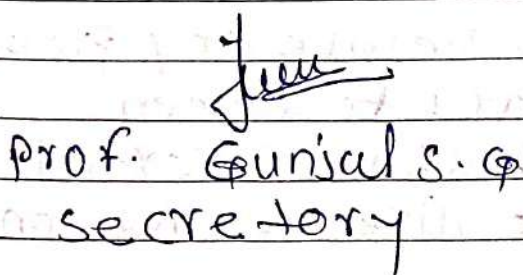 Prof. Gunjal S. G
secretory